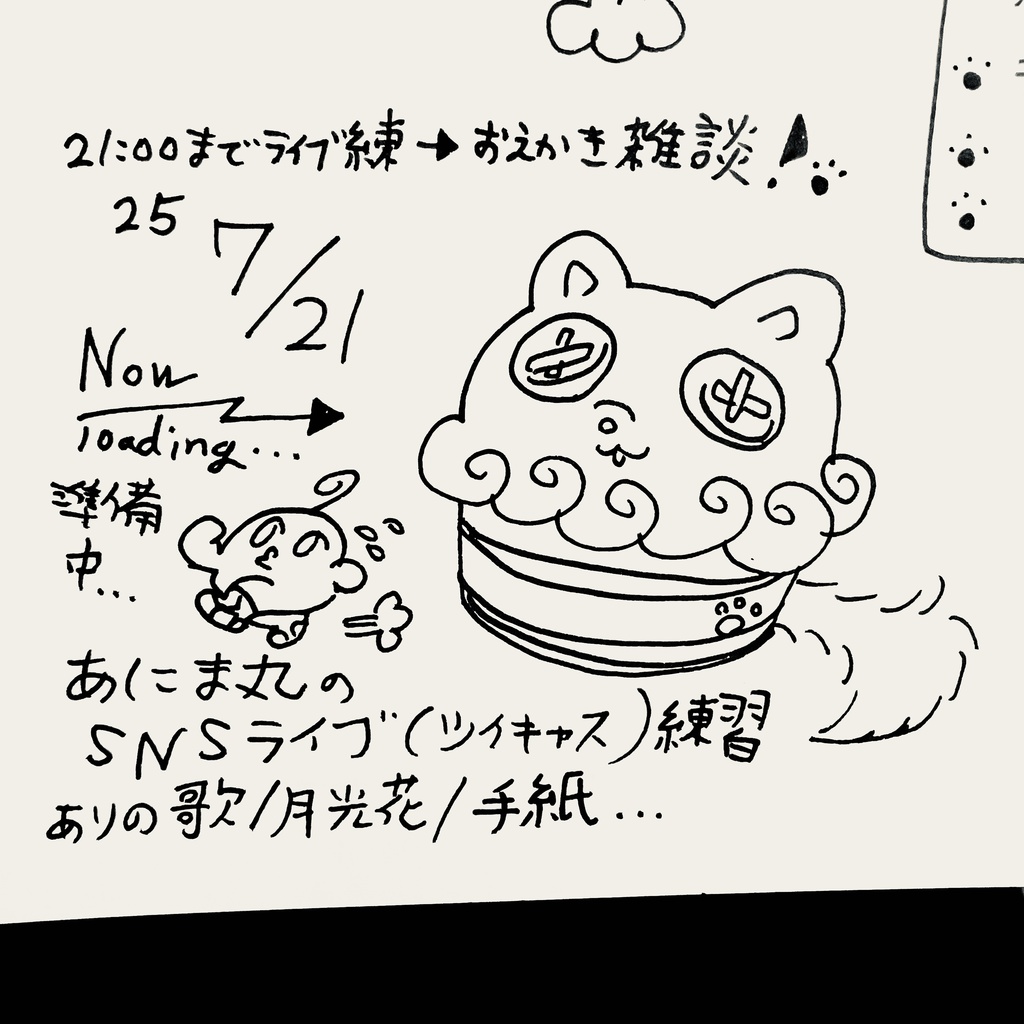 21:00までライブ練→おえかき雑談!
25
7/21
Now
loading...
準備
中...
あにま丸の
SNSライブ(ツイキャス)練習
ありの歌/月光花/手紙...